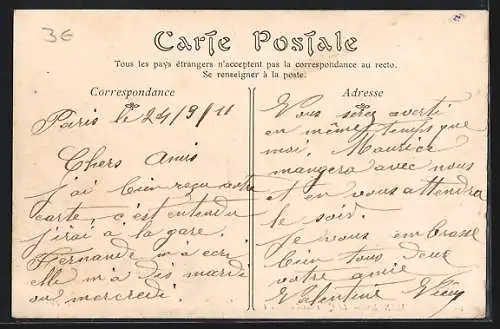 3€
Carte Postale
Tous les pays étrangers n'acceptent pas la correspondance au recto.
Se renseigner à la poste.
Correspondance
Paris le 24/9/11
Chers Amis
J'ai bien reçu votre
carte, c'est entendu
j'irai à la gare.
Fernande m'a écri
elle m'a dis mardi
ou mercredi.
Adresse
Vous serez averti
en même temps que
moi Maurice
mangera avec nous
et en vous attendra
le soir.
Je vous embrasse
bien tous deux
votre amie
Valentine